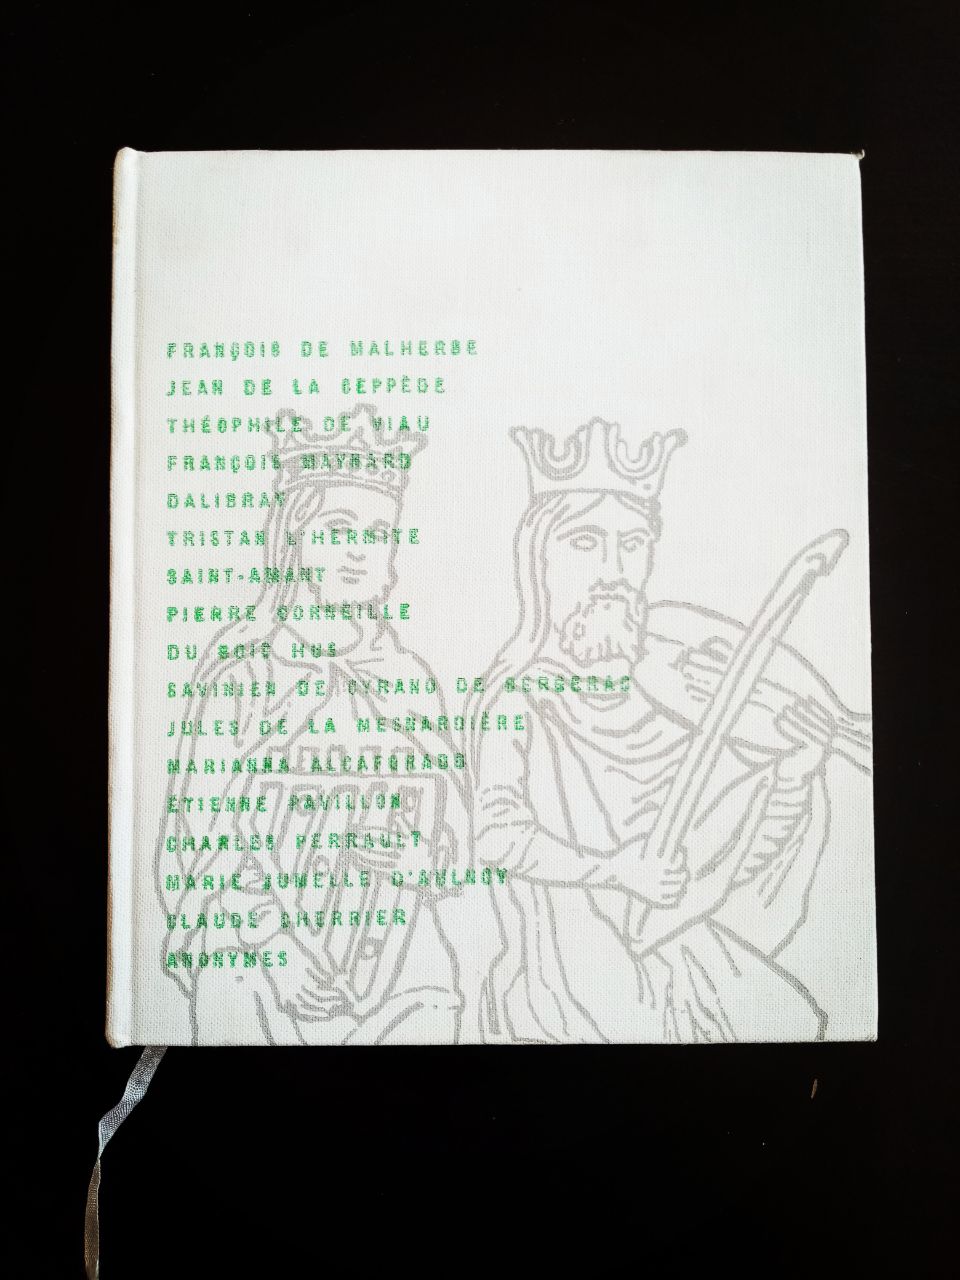 FRANÇOIS DE MALHERBE
JEAN DE LA CEPPÈDE
THÉOPHILE DE VIAU
FRANÇOIS MAYNARD
DALIBRAY
TRISTAN L'HERMITE
SAINT-AMANT
PIERRE CORNEILLE
DU BOIS HUS
SAVINIEN DE CYRANO DE BERGERAC
JULES DE LA MESNARDIÈRE
MARIANNA ALCAFORADO
ÉTIENNE PAVILLON
CHARLES PERRAULT
MARIE JUMELLE D'AULNOY
CLAUDE CHERRIER
ANONYMES